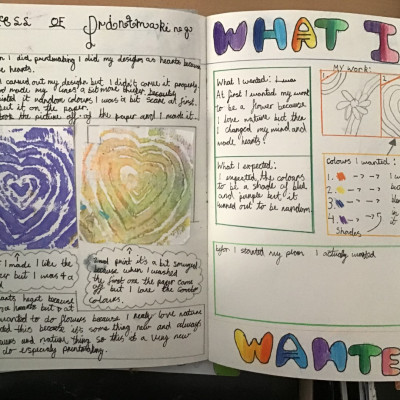 ess OF Printmaking
n I did printmaking I did my design as hearts because
e hearts.
I carved out my design but I didn't carve it properly
made my lines a bit more thicker because
inted it random colours I was a bit scare at first.
put it on the paper.
took the picture off of the paper and I made it.
t I made I like the
er but I was
final print it's a bit smudged
because when I washed
the first one the paper came
off but I love the combo
colours.
hearts because
a hearts but at
wanted to do flowers because I really love nature
did this because it's some thing new and always
and nature thing so this is a very new
do especially printmaking.
WHAT I
What I wanted:
At first I wanted my work
to be a flower because
I love nature but then
I changed my mind and
made hearts!
What I expected:
I expected the colours
to be a shade of blue
and purple but it
turned out to be random.
My work:
1.
2
Colours I wanted:
1.
2.
3.
4.
Shades
before I started my plan I actually wanted
WANTE